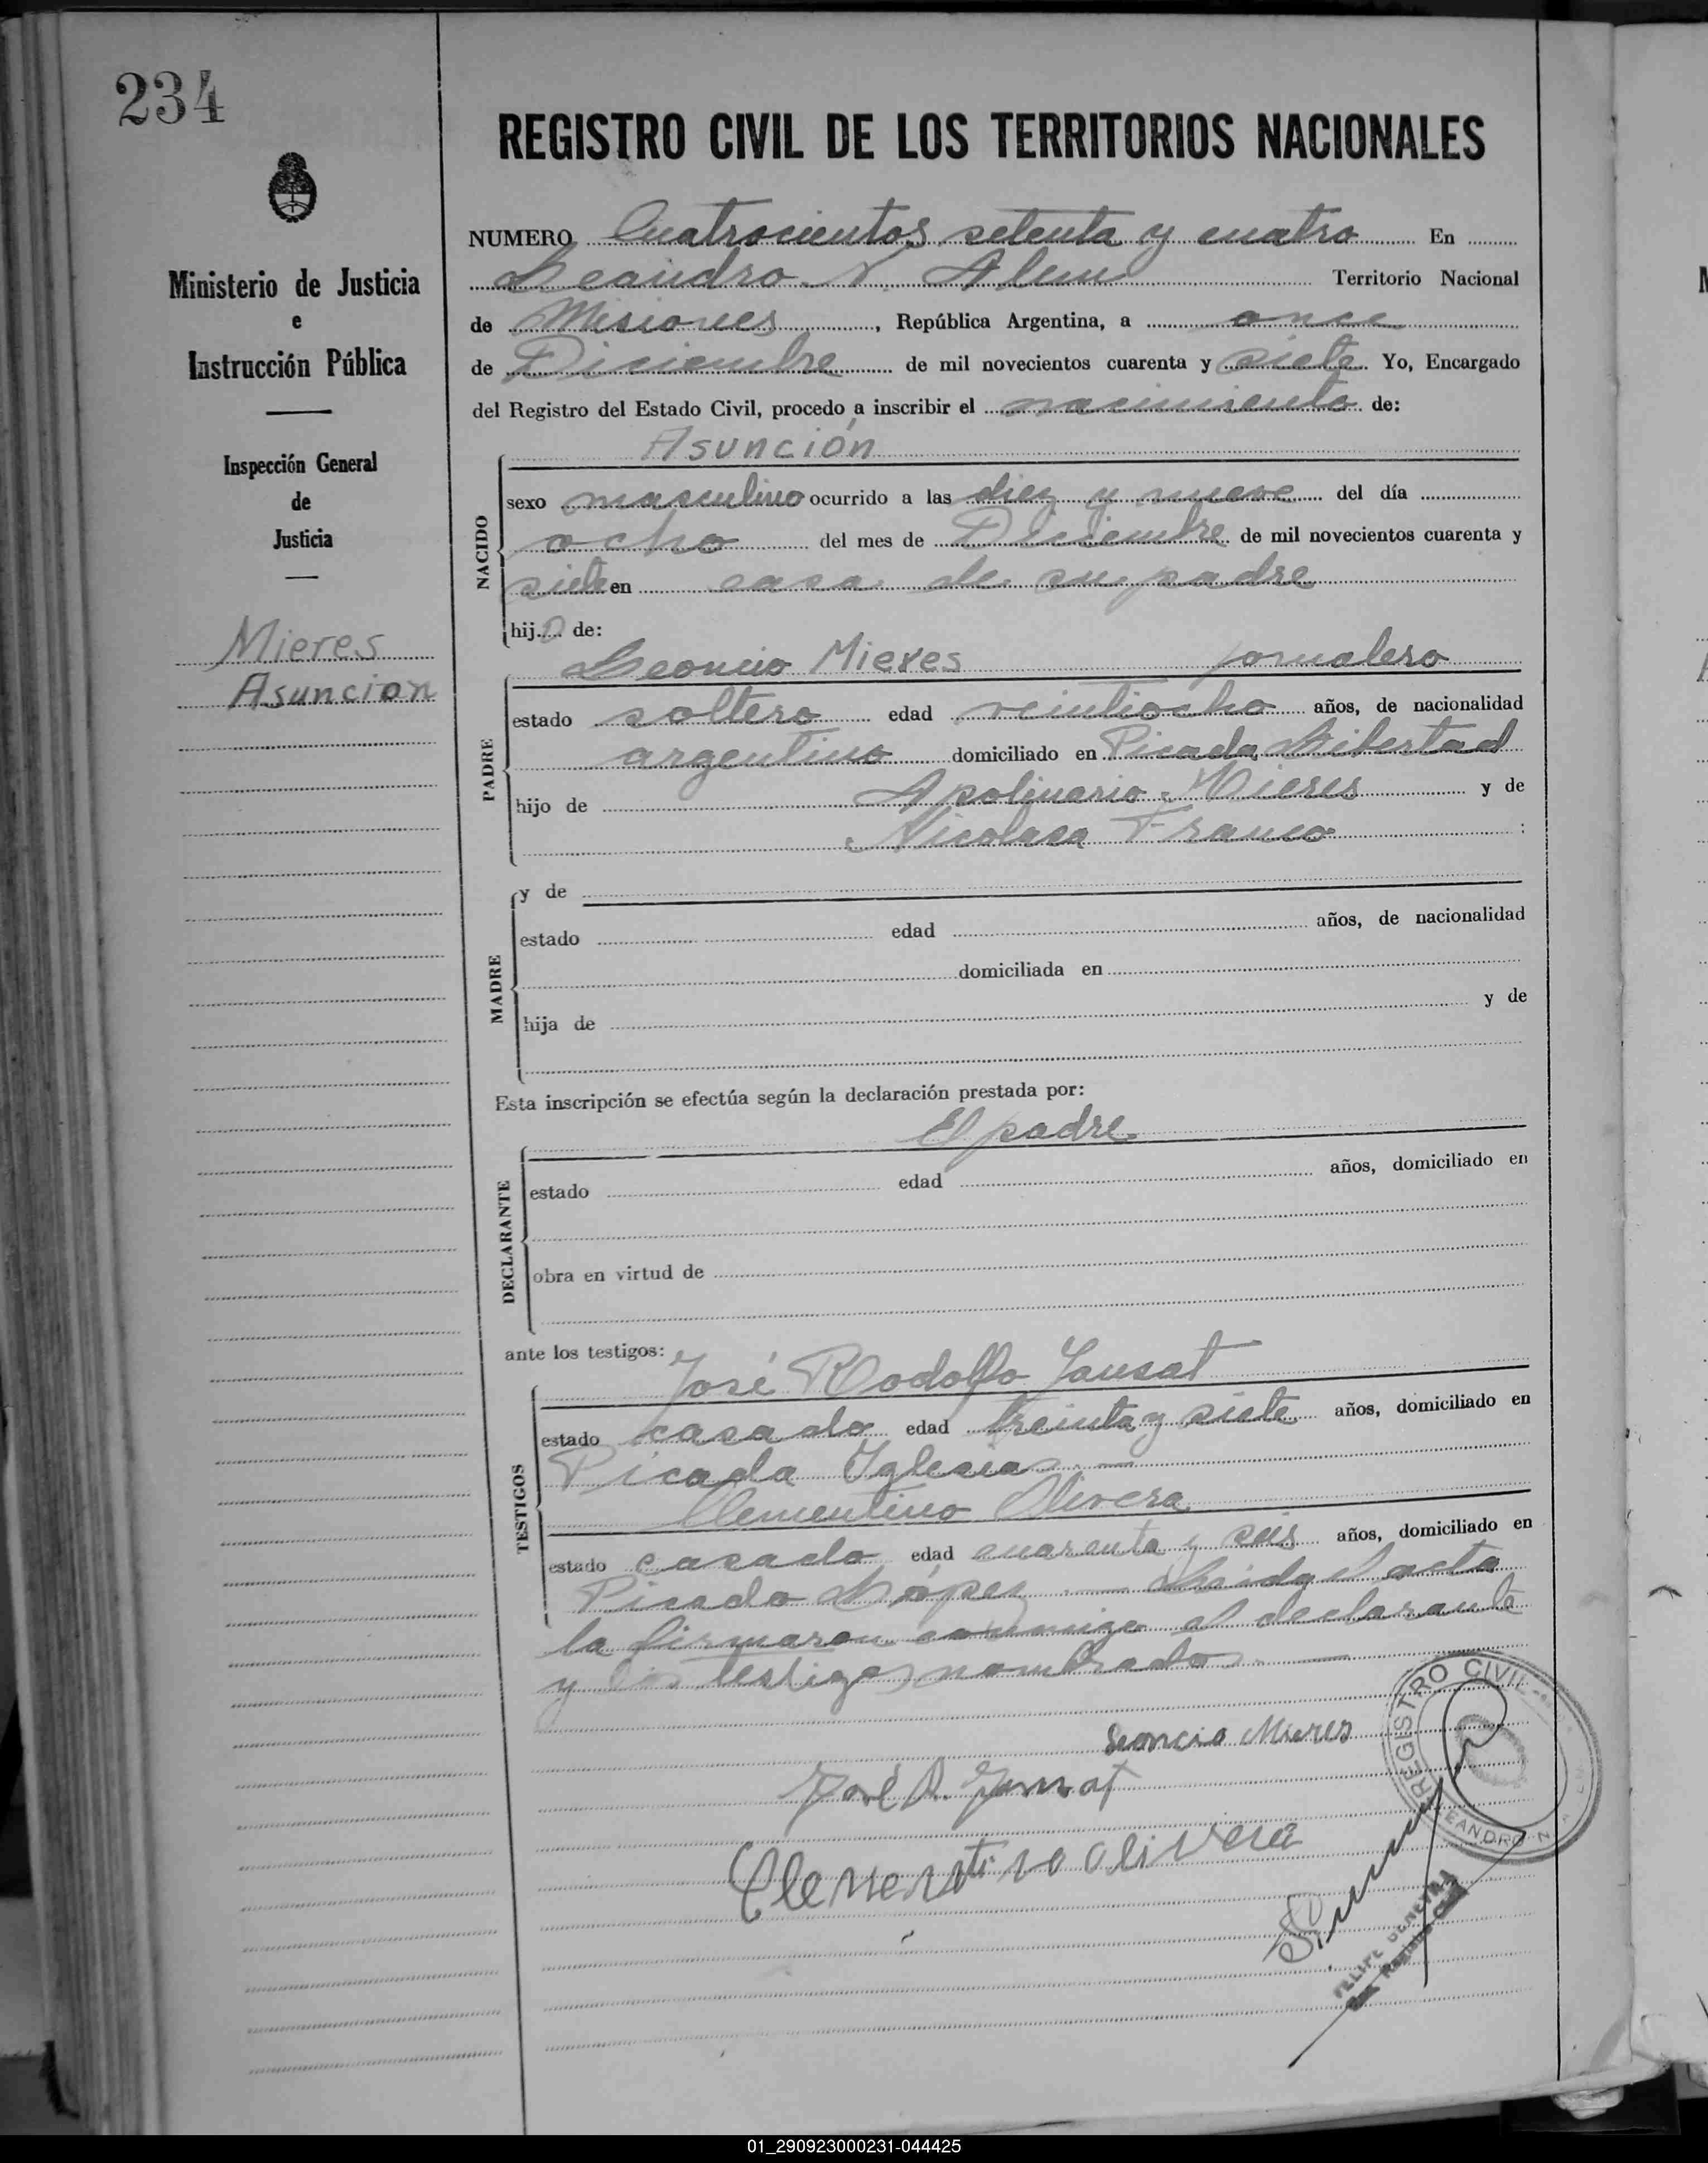 234
Ministerio de Justicia
e
Instrucción Pública
Inspección General
de
Justicia
Mieres
Asuncion
REGISTRO CIVIL DE LOS TERRITORIOS NACIONALES
NUMERO Cuatrocientos setenta y cuatro En
Leandro N. Alem Territorio Nacional
de Misiones, República Argentina, a once
de Diciembre de mil novecientos cuarenta y siete Yo, Encargado
del Registro del Estado Civil, procedo a inscribir el nacimiento de:
Asunción
NACIDO
sexo masculino ocurrido a las diez y nueve del día
ocho del mes de Diciembre de mil novecientos cuarenta y
siete en casa de su padre
hijo de:
Leoncio Mieres jornalero
PADRE
estado soltero edad veintiocho años, de nacionalidad
argentino domiciliado en Picada Libertad
hijo de Apolinario Mieres y de
Nicolasa Franco :
MADRE
y de
estado edad años, de nacionalidad
domiciliada en
hija de y de
Esta inscripción se efectúa según la declaración prestada por:
El padre
DECLARANTE
estado edad años, domiciliado en
obra en virtud de
ante los testigos:
José Rodolfo Jansat
TESTIGOS
estado casado edad treinta y siete años, domiciliado en
Picada Iglesias. —
Clementino Olivera
estado casado edad cuarenta y seis años, domiciliado en
Picada López. — Leida el acta
la firmaron conmigo el declarante
y los testigos nombrados. —
Leoncio Mieres
José R. Jansat
Clementino Olivera
REGISTRO CIVIL
LEANDRO N. ALEM
FELIPE
Registro Civil
01_290923000231-044425